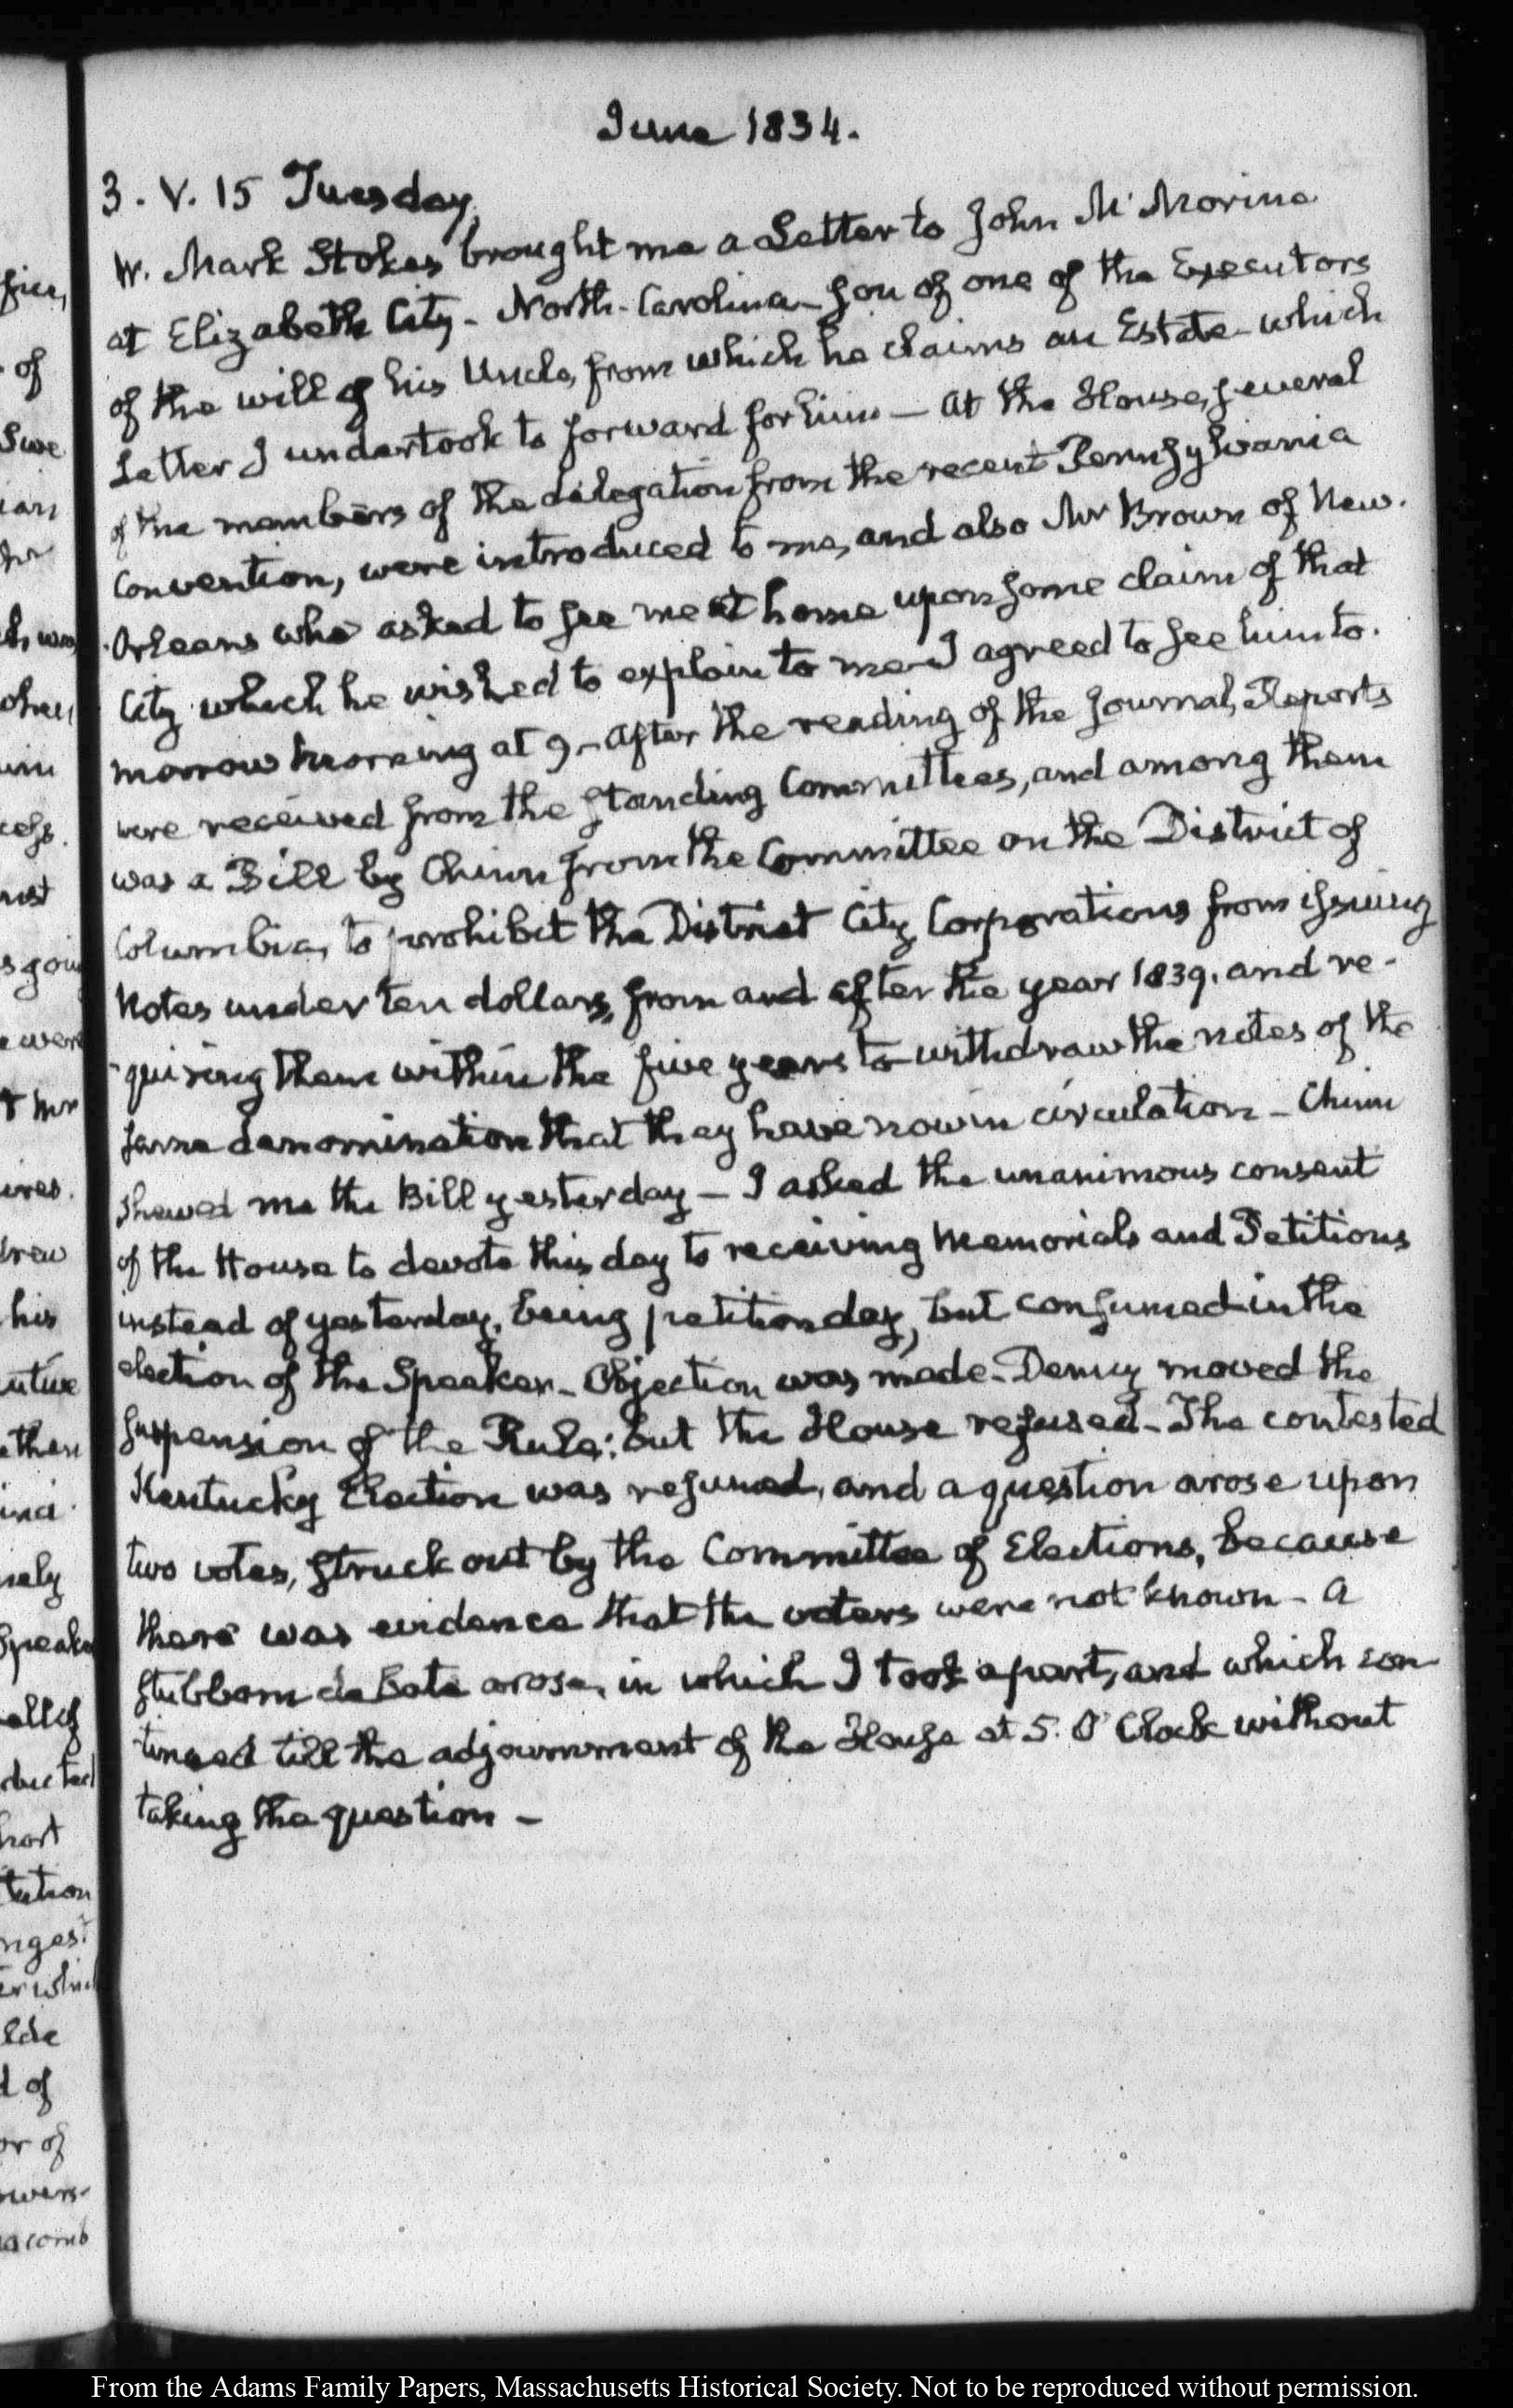 June 1834.
3. V. 15 Tuesday.
W. Mark Stokes brought me a Letter to John McMorine
at Elizabeth City - North-Carolina - son of one of the Executors
of the will of his Uncle, from which he claims an Estate - which
Letter I undertook to forward for him — At the House, several
of the members of the delegation from the recent Pennsylvania
Convention, were introduced to me, and also Mr Brown of New-
-Orleans who asked to see me at home upon some claim of that
City which he wished to explain to me - I agreed to see him to-
morrow morning at 9 - After the reading of the Journal, Reports
were received from the standing Committees, and among them
was a Bill by Chinn from the Committee on the District of
Columbia, to prohibit the District City Corporations from issuing
Notes under ten dollars, from and after the year 1839. and re-
-quiring them within the five years to withdraw the notes of the
same denomination that they have now in circulation - Chinn
shewed me the Bill yesterday — I asked the unanimous consent
of the House to devote this day to receiving Memorials and Petitions
instead of yesterday, being petition day, but consumed in the
election of the Speaker - Objection was made - Denny moved the
suspension of the Rule; but the House refused - The contested
Kentucky Election was resumed, and a question arose upon
two votes, struck out by the Committee of Elections, because
there was evidence that the voters were not known - A
stubborn debate arose, in which I took a part, and which con
tinued till the adjournment of the House at 5. O'Clock without
taking the question -
From the Adams Family Papers, Massachusetts Historical Society. Not to be reproduced without permission.